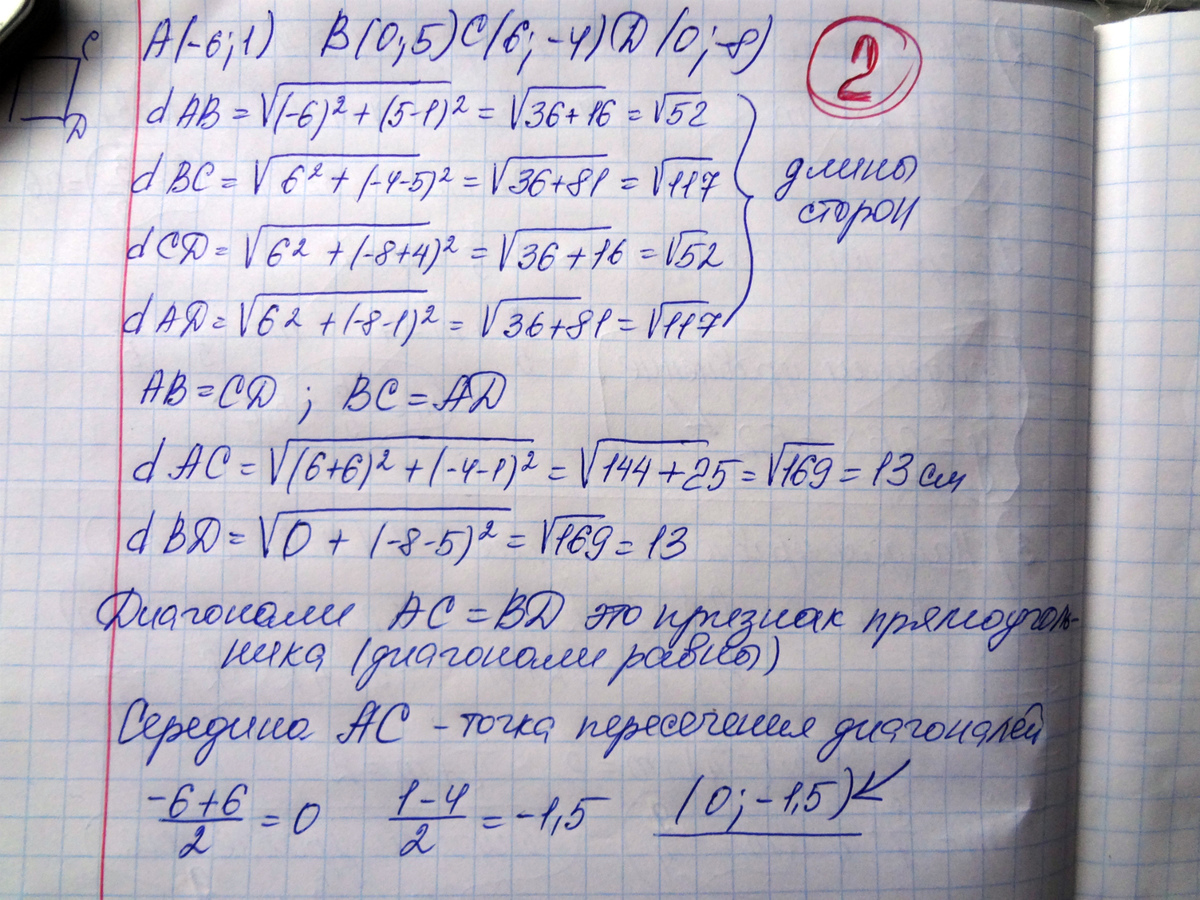 A(-6;1) B(0;5) C(6;-4) D(0;-8)
2
C
D
dAB = √((-6)² + (5-1)²) = √(36+16) = √52
dBC = √(6² + (-4-5)²) = √(36+81) = √117
dCD = √(6² + (-8+4)²) = √(36+16) = √52
dAD = √(6² + (-8-1)²) = √(36+81) = √117
длины
сторон
AB = CD ; BC = AD
dAC = √((6+6)² + (-4-1)²) = √(144+25) = √169 = 13 см
dBD = √(0 + (-8-5)²) = √169 = 13
Диагонали AC = BD это признак прямоуголь-
ника (диагонали равны)
Середина AC - точка пересечения диагоналей
(-6+6)/2 = 0 (1-4)/2 = -1,5 (0;-1,5)